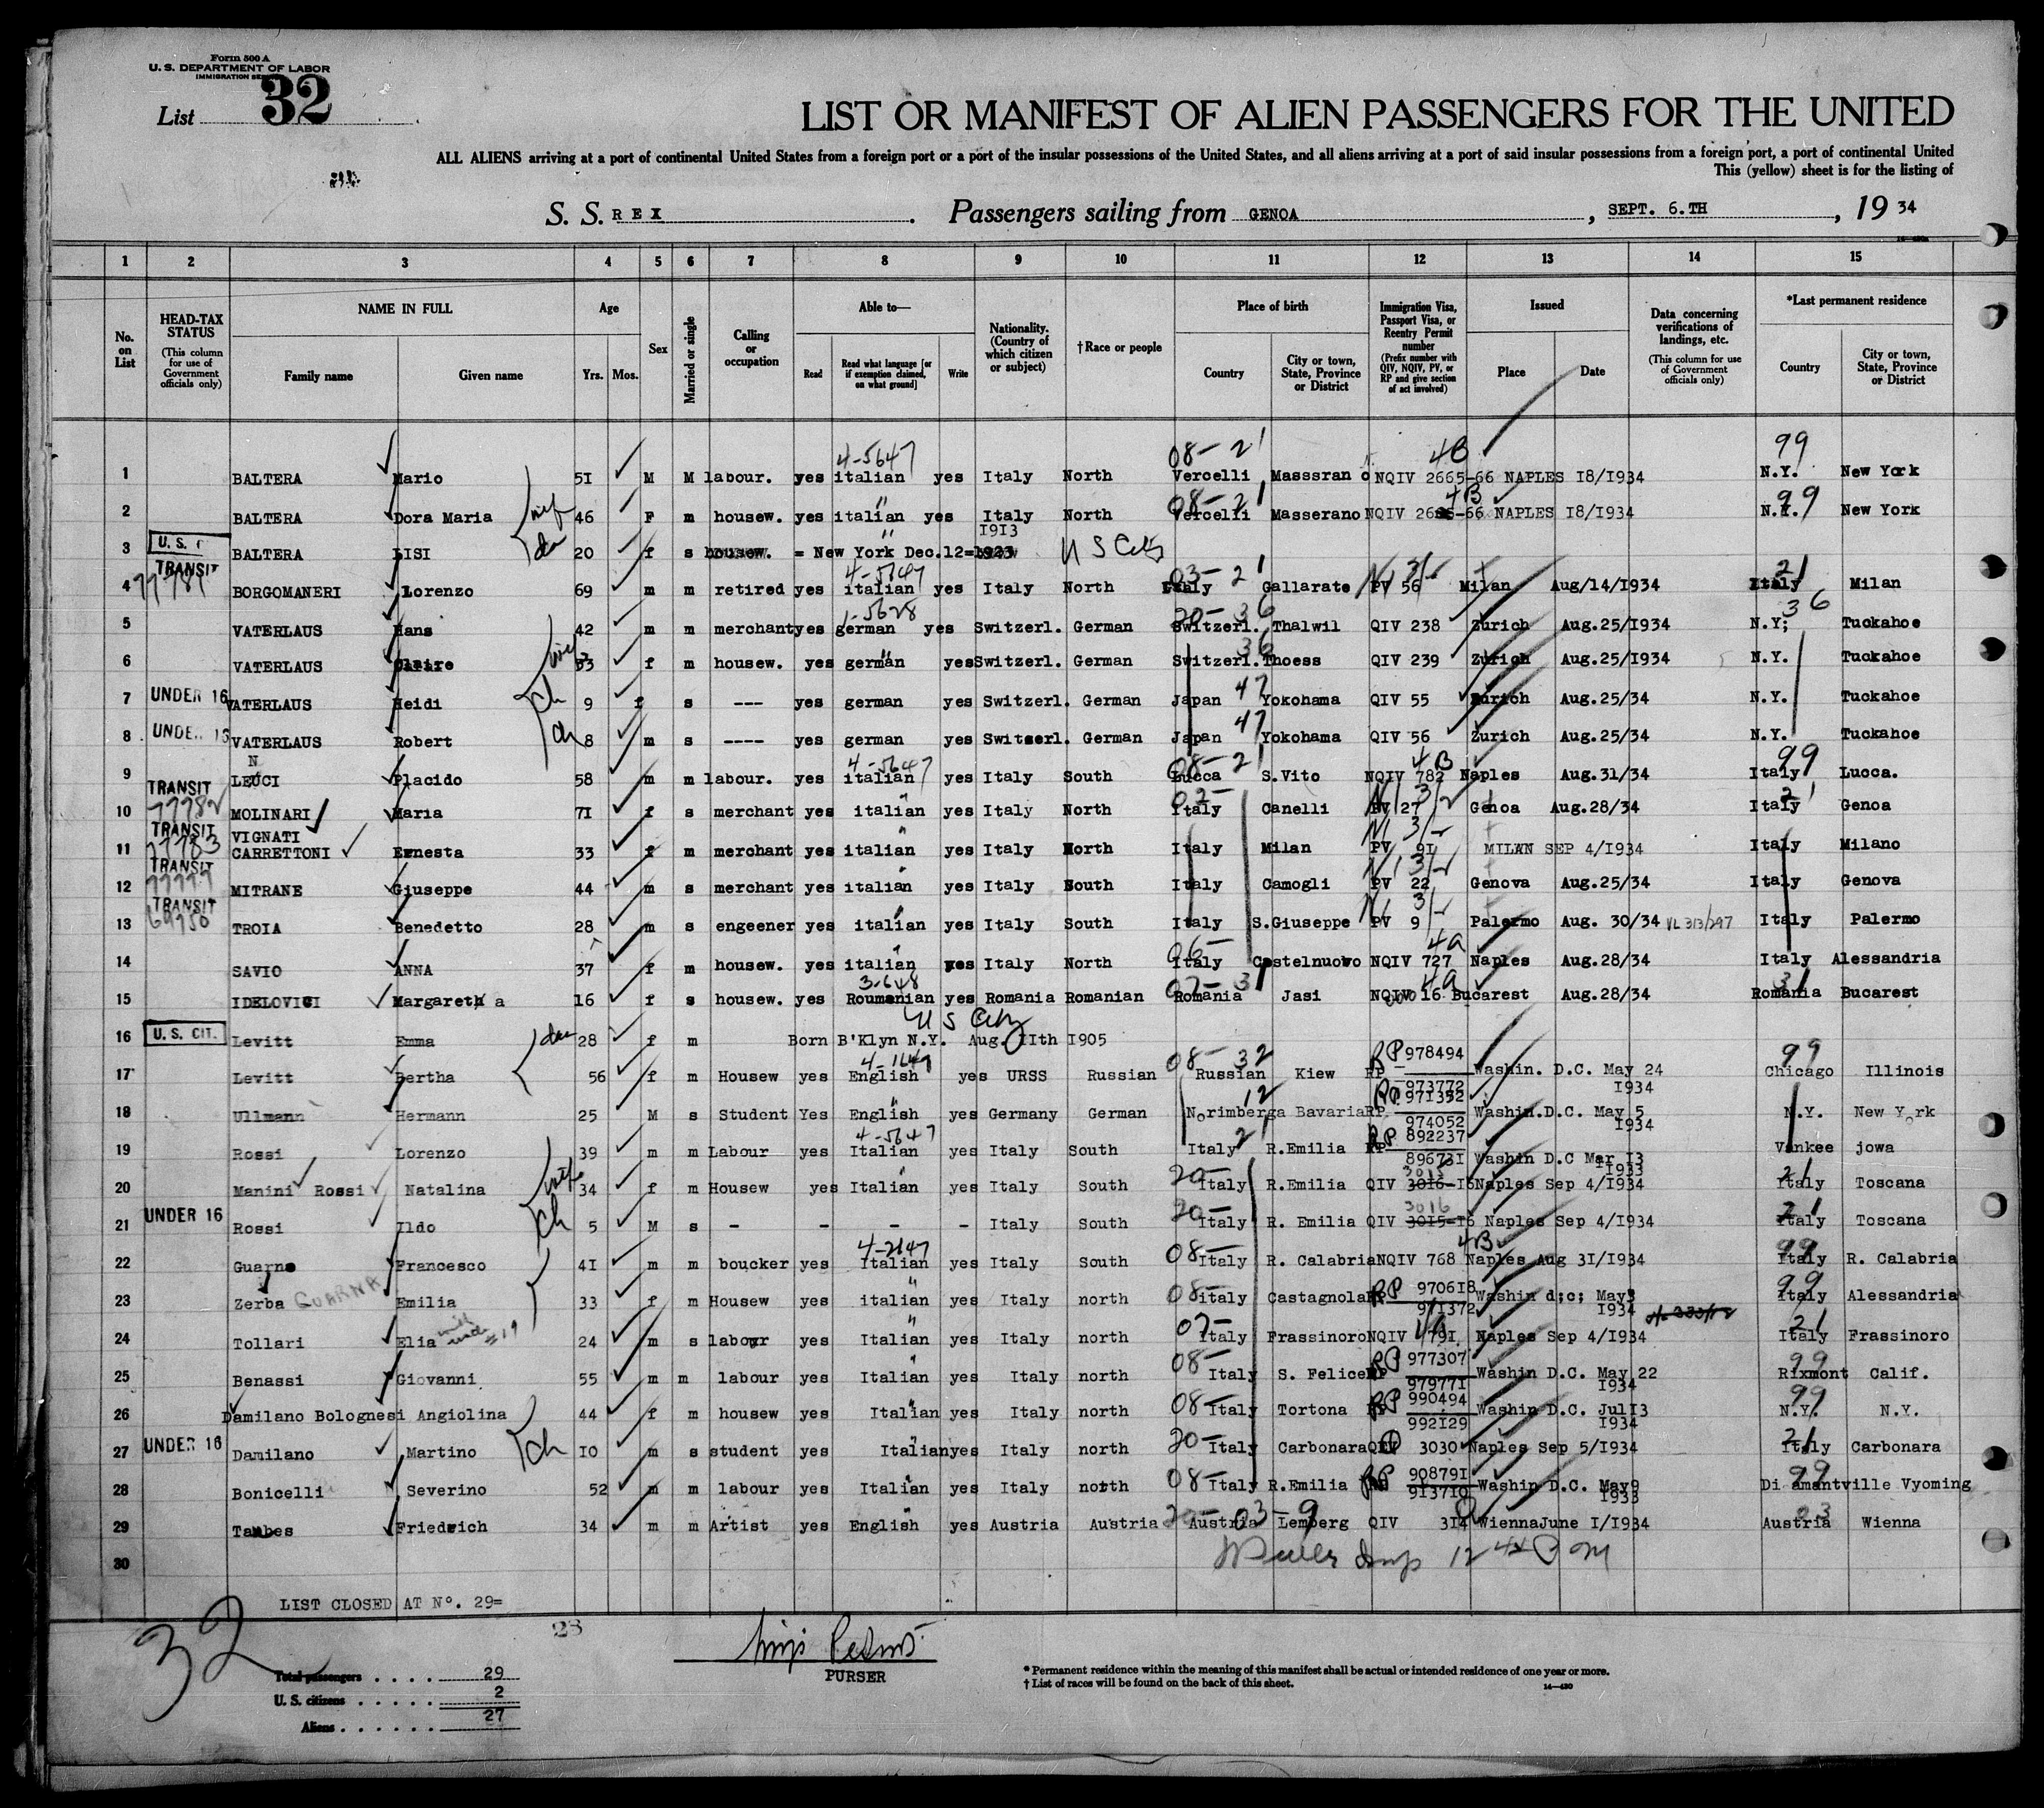 Form 500 A
U. S. DEPARTMENT OF LABOR
IMMIGRATION SERVICE
List 32
LIST OR MANIFEST OF ALIEN PASSENGERS FOR THE UNITED
ALL ALIENS arriving at a port of continental United States from a foreign port or a port of the insular possessions of the United States, and all aliens arriving at a port of said insular possessions from a foreign port, a port of continental United
This (yellow) sheet is for the listing of
S. S. REX . Passengers sailing from GENOA , SEPT. 6.TH , 19 34
1 2 3 4 5 6 7 8 9 10 11 12 13 14 15
No. on List
HEAD-TAX STATUS (This column for use of Government officials only)
NAME IN FULL
Family name Given name
Age
Yrs. Mos.
Sex
Married or single
Calling or occupation
Able to—
Read Read what language [or if exemption claimed, on what ground] Write
Nationality. (Country of which citizen or subject)
†Race or people
Place of birth
Country City or town, State, Province or District
Immigration Visa, Passport Visa, or Reentry Permit number (Prefix number with QIV, NQIV, PV, or RP and give section of act involved)
Issued
Place Date
Data concerning verifications of landings, etc. (This column for use of Government officials only)
*Last permanent residence
Country City or town, State, Province or District
4-5647 08-21 4B 99
1 BALTERA Mario 51 M M labour. yes italian yes Italy North Vercelli Masssran o NQIV 2665-66 NAPLES 18/1934 N.Y. New York
08-21 4B 99
2 BALTERA Dora Maria wife 46 F m housew. yes italian yes Italy North Vercelli Masserano NQIV 2665-66 NAPLES 18/1934 N.Y. New York
1913
3 BALTERA LISI da 20 f s housew. = New York Dec.12= US City
TRANSIT 77781 4-5647 03-21 21
4 BORGOMANERI Lorenzo 69 m m retired yes italian yes Italy North Italy Gallarate PV 56 Milan Aug/14/1934 Italy Milan
1-5628 20-36 36
5 VATERLAUS Hans 42 m m merchant yes german yes Switzerl. German Switzerl. Thalwil QIV 238 Zurich Aug.25/1934 N.Y; Tuckahoe
36
6 VATERLAUS Claire wife 33 f m housew. yes german yes Switzerl. German Switzerl. Thoess QIV 239 Zurich Aug.25/1934 N.Y. Tuckahoe
7 UNDER 16 VATERLAUS Heidi ch 9 f s --- yes german yes Switzerl. German Japan 47 Yokohama QIV 55 Zurich Aug.25/34 N.Y. Tuckahoe
8 UNDER 16 VATERLAUS Robert ch 8 m s ---- yes german yes Switserl. German Japan 47 Yokohama QIV 56 Zurich Aug.25/34 N.Y. Tuckahoe
N 4-5647 08-21 4B 99
9 LEUCI Placido 58 m m labour. yes italian yes Italy South Lucca S.Vito NQIV 782 Naples Aug.31/34 Italy Lucca.
TRANSIT 77782 02- 21
10 MOLINARI Maria 71 f s merchant yes italian yes Italy North Italy Canelli PV 27 Genoa Aug.28/34 Italy Genoa
TRANSIT 77783 VIGNATI
11 CARRETTONI Ernesta 33 f m merchant yes italian yes Italy North Italy Milan PV 91 MILAN SEP 4/1934 Italy Milano
TRANSIT
12 MITRANE Giuseppe 44 m s merchant yes italian yes Italy South Italy Camogli PV 22 Genova Aug.25/34 Italy Genova
TRANSIT
13 TROIA Benedetto 28 m s engeener yes italian yes Italy South Italy S.Giuseppe PV 9 Palermo Aug. 30/34 VL 313/297 Italy Palermo
06- 4a
14 SAVIO ANNA 37 f m housew. yes italian yes Italy North Italy Castelnuovo NQIV 727 Naples Aug.28/34 Italy Alessandria
3-648 07-31 4a 31
15 IDELOVICI Margareta 16 f s housew. yes Roumanian yes Romania Romanian Romania Jasi NQIV 16 Bucarest Aug.28/34 Romania Bucarest
US City
16 U. S. CIT. Levitt Emma dau 28 f m Born B'Klyn N.Y. Aug. 11th 1905
08-32 RP 978494 99
17 Levitt Bertha 56 f m Housew yes English yes URSS Russian Russian Kiew RP 973772 Washin. D.C. May 24 1934 Chicago Illinois
12 RP 971352
18 Ullmann Hermann 25 M s Student Yes English yes Germany German Norimberga Bavaria RP 974052 Washin.D.C. May 5 1934 N.Y. New York
4-5647 21 RP 892237
19 Rossi Lorenzo 39 m m Labour yes Italian yes Italy South Italy R.Emilia RP 896731 Washin D.C Mar 13 1933 Vankee jowa
20- 3015 21
20 Manini Rossi Natalina wife 34 f m Housew yes Italian yes Italy South Italy R.Emilia QIV 3016-16 Naples Sep 4/1934 Italy Toscana
20- 3016 21
21 UNDER 16 Rossi Ildo ch 5 M s - - - - Italy South Italy R. Emilia QIV 3015-16 Naples Sep 4/1934 Italy Toscana
4-2147 08- 4B 99
22 Guarna Francesco 41 m m boucker yes Italian yes Italy South Italy R. Calabria NQIV 768 Naples Aug 31/1934 Italy R. Calabria
08- RP 970618 99
23 Zerba GUARNA Emilia 33 f m Housew yes italian yes Italy north Italy Castagnola RP 971372 Washin d;c; May3 1934 Italy Alessandria
07- 21
24 Tollari Elia 24 m s labour yes Italian yes Italy north Italy Frassinoro NQIV 791 Naples Sep 4/1934 Italy Frassinoro
08- RP 977307 99
25 Benassi Giovanni 55 m m labour yes Italian yes Italy north Italy S. Felice RP 979771 Washin D.C. May 22 1934 Rixmont Calif.
08- RP 990494 99
26 Damilano Bolognesi Angiolina 44 f m housew yes Italian yes Italy north Italy Tortona RP 992129 Washin D.C. Jul13 1934 N.Y. N.Y.
20- 21
27 UNDER 16 Damilano Martino ch 10 m s student yes Italian yes Italy north Italy Carbonara QIV 3030 Naples Sep 5/1934 Italy Carbonara
08- RP 908791 99
28 Bonicelli Severino 52 m m labour yes Italian yes Italy north Italy R.Emilia RP 913710 Washin D.C. May9 1933 Di amantville Vyoming
20- 03-9 03
29 Taubes Friedrich 34 m m Artist yes English yes Austria Austria Austria Lemberg QIV 314 Wienna June 1/1934 Austria Wienna
30
LIST CLOSED AT Nº. 29=
32
23
PURSER
Total passengers . . . . 29
U. S. citizens . . . . . 2
Aliens . . . . . . 27
* Permanent residence within the meaning of this manifest shall be actual or intended residence of one year or more.
† List of races will be found on the back of this sheet.
14—430